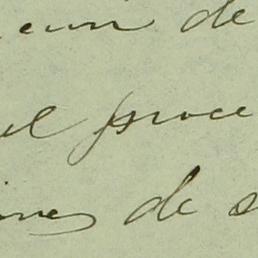 cion de
el proce
ines de s